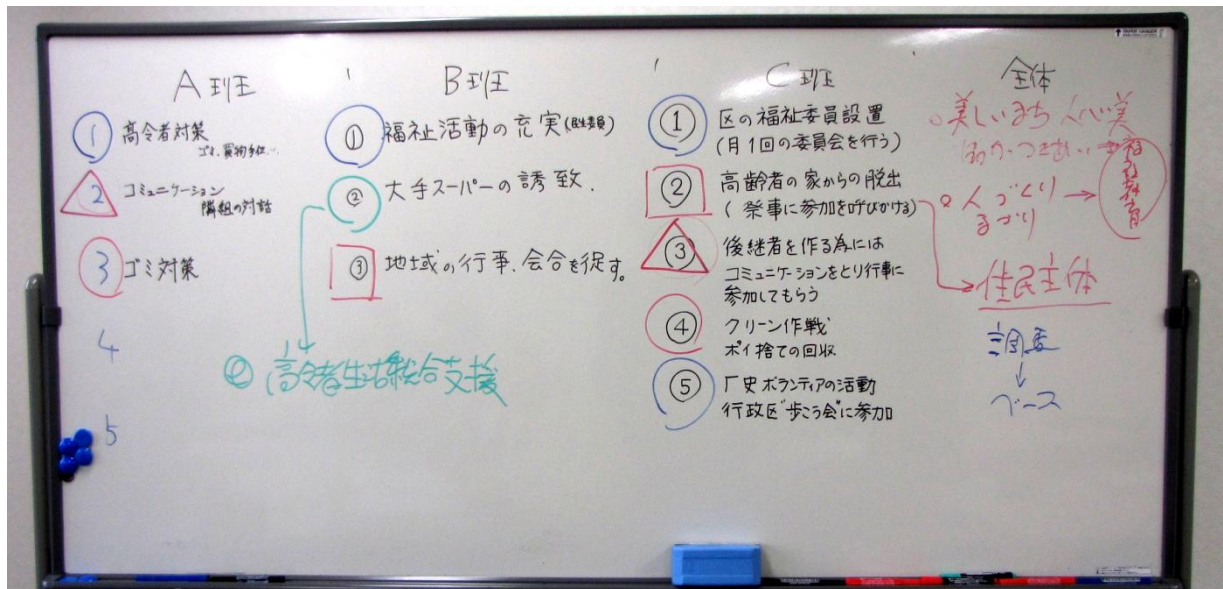 A班
① 高令者対策
ゴミ、買物手伝…
2 コミュニケーション
隣組の対話
3 ゴミ対策
4
5
B班
① 福祉活動の充実(民生委員)
② 大手スーパーの誘致.
③ 地域の行事、会合を促す。
② 高令者生活総合支援
C班
① 区の福祉委員設置
(月1回の委員会を行う)
② 高齢者の家からの脱出
(祭事に参加を呼びかける)
③ 後継者を作る為には
コミュニケーションをとり行事に
参加してもらう
④ クリーン作戦
ポイ捨ての回収
⑤ 厂史ボランティアの活動
行政区"歩こう会"に参加
全体
○美しいまち 人心美
○人づくり →
まづり
福祉教育
住民主体
調査
↓
ベース